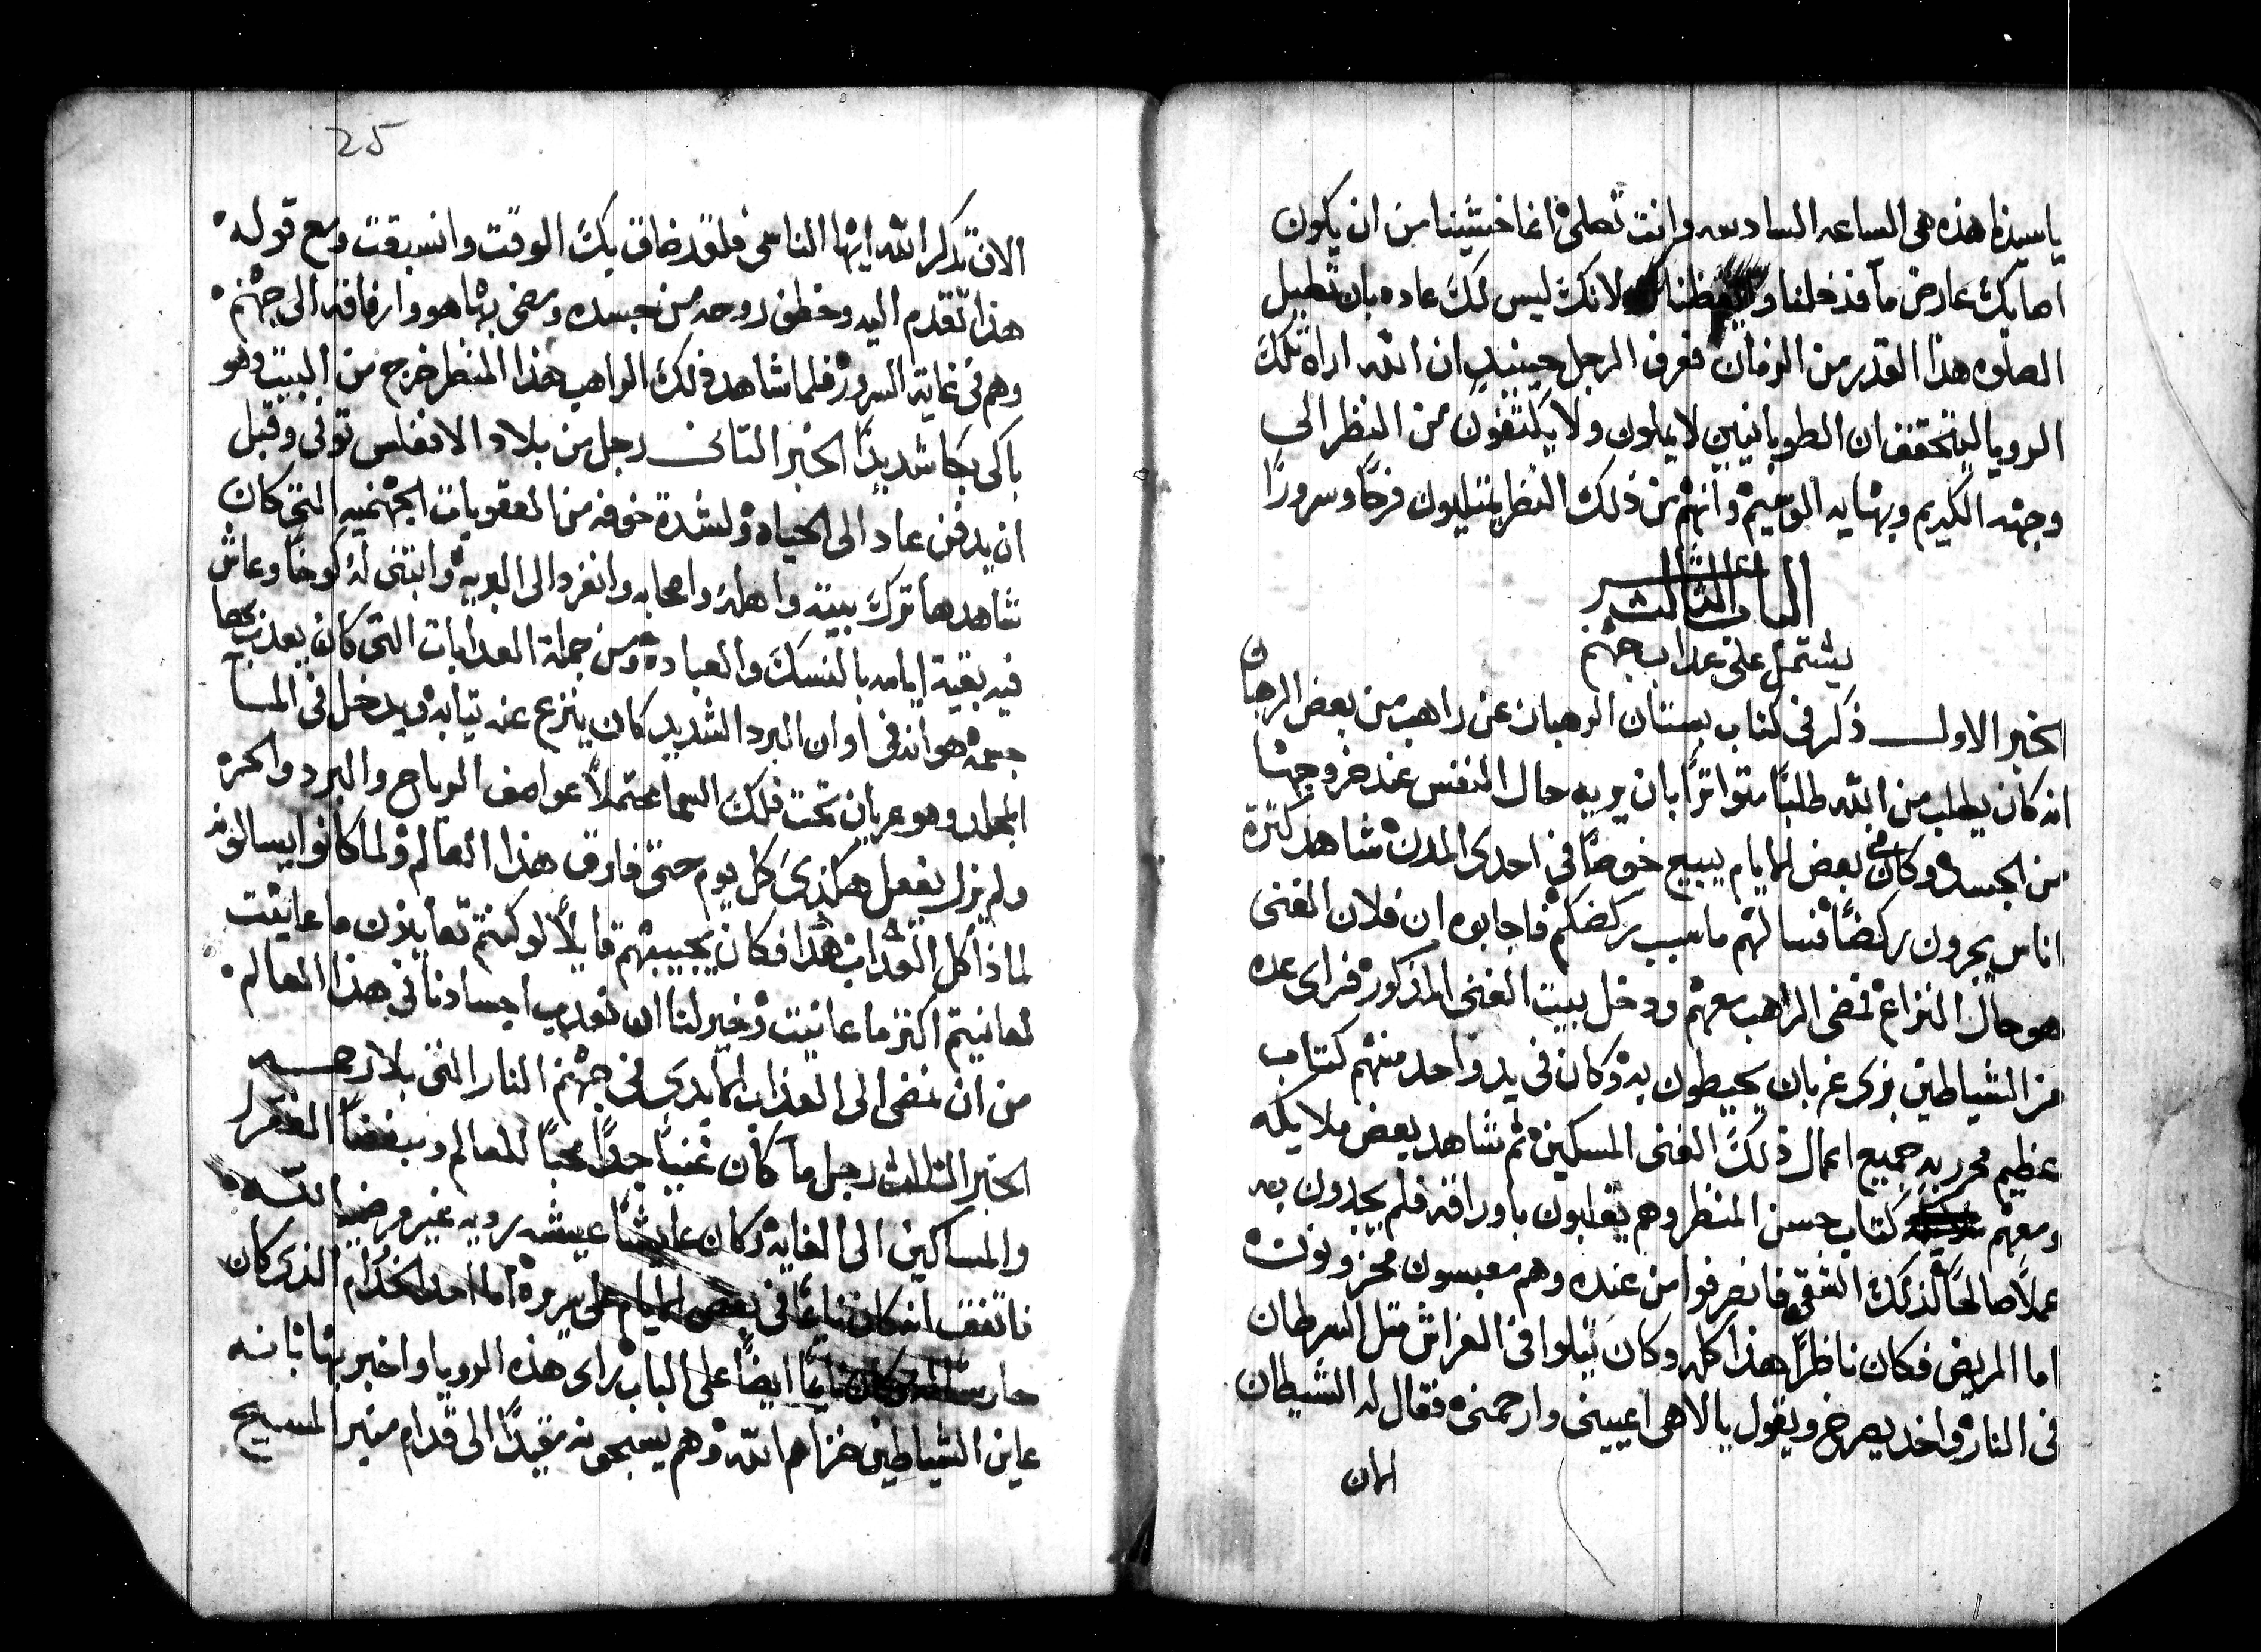 ياسيدنا هذه هى الساعه السادسه وانت تصلى انما خشينا من ان يكون
اصابك عارض ما فدخلنا لانك ليس لك عاده بان تطيل
الصلوه هذا القدر من الزمان فعرف الرجل حينيدٍ ان الله اراه تلك
الرويا ليتحقق ان الطوبانيين لا يملون ولا يكتفون من النظر الى
وجهه الكريم وبهايه الوسيم وانهم من ذلك النظر يمتليون فرحًا وسرورًا
الباب الثالث عشر
يشتمل على عداب جهنم
الخبر الاول ذكر فى كتاب بستان الرهبان عن راهب من بعض الرهبان
انه كان يطلب من الله طلبًا متواترًا بان يريه حال النفس عند خروجها
من الجسد وكان فى بعض الايام يبيع خوصًا فى احدى المدن شاهد كثرة
اناس يجرون ركضًا فسالهم ما سبب ركضكم فاجابوه ان فلان الغنى
هو حال النزاع فمضى الراهب معهم ودخل بيت الغنى المذكور فراى عده
من الشياطين بزى غربان يحيطون به وكان فى يد واحد منهم كتاب
عظيم محرر به جميع اعمال ذلك الغنى المسكين ثم شاهد بعض ملايكه
ومعهم كتاب حسن المنظر وهم يقلبون باوراقه فلم يجدون به
عملاً صالحًا لذلك الشقى فانصرفوا من عنده وهم معبسون محزونون
اما المريض فكان ناظرًا هذا كله وكان يتلوا فى الفراش متل السرطان
فى النار واخد يصرخ ويقول يا الاهى اعيينى وارحمنى فقال له الشيطان
الان
25
الان تدكر الله ايها الناسى فلقد ضاق بك الوقت وانسبقت ومع قوله
هذا تقدم اليه وخطف روحه من جسده ومضى بها هو وارفاقه الى جهنم
وهم فى غاية السرور فلما شاهد ذلك الراهب هذا المنظر خرج من البيت وهو
باكى بكا شديدًا الخبر التانى رجل من بلاد الانفلس توفى وقبل
ان يدفن عاد الى الحياه ولشدة خوفه من العقوبات الجهنميه التى كان
شاهدها ترك بيته واهله واصحابه وانفرد الى البريه وابتنى له كوخًا وعاش
فيه بقية ايامه بالنسك والعباده ومن جملة العدابات التى كان يعدب بها
جسمه هو انه فى اوان البرد الشديد كان ينزع عنه تيابه ويدخل فى الما
المجلد وهو عريان تحت فلك السما محتملاً عواصف الرياح والبرد والحر
ولم يزل يفعل هكذى كل يوم حتى فارق هذا العالم ولما كانوا يسالونه
لماذا كل العداب هذا فكان يجيبهم قايلاً لو كنتم تعاينون ما عاينت
لعانيتم اكتر ما عانيت وخير لنا ان نعدب اجسادنا فى هذا العالم
من ان نمضى الى العذاب الابدى فى جهنم النار التى بلا رحمه
الخبر التالت رجل ما كان غنيًا جدًا محبًا للعالم ومبغضًا الفقرا
والمساكين الى الغايه وكان عايشًا عيشه رديه غير مرضيا لله
فاتفق انه كان نايمًا فى بعض الايام على سريره اما احد الخدام الذى كان
حارسًا له وكان نايمًا ايضًا على الباب راى هذه الرويا واخبر بها بانه
عاين الشياطين خزاهم الله وهم يسحبونه مقيدًا الى قدام منبر المسيح